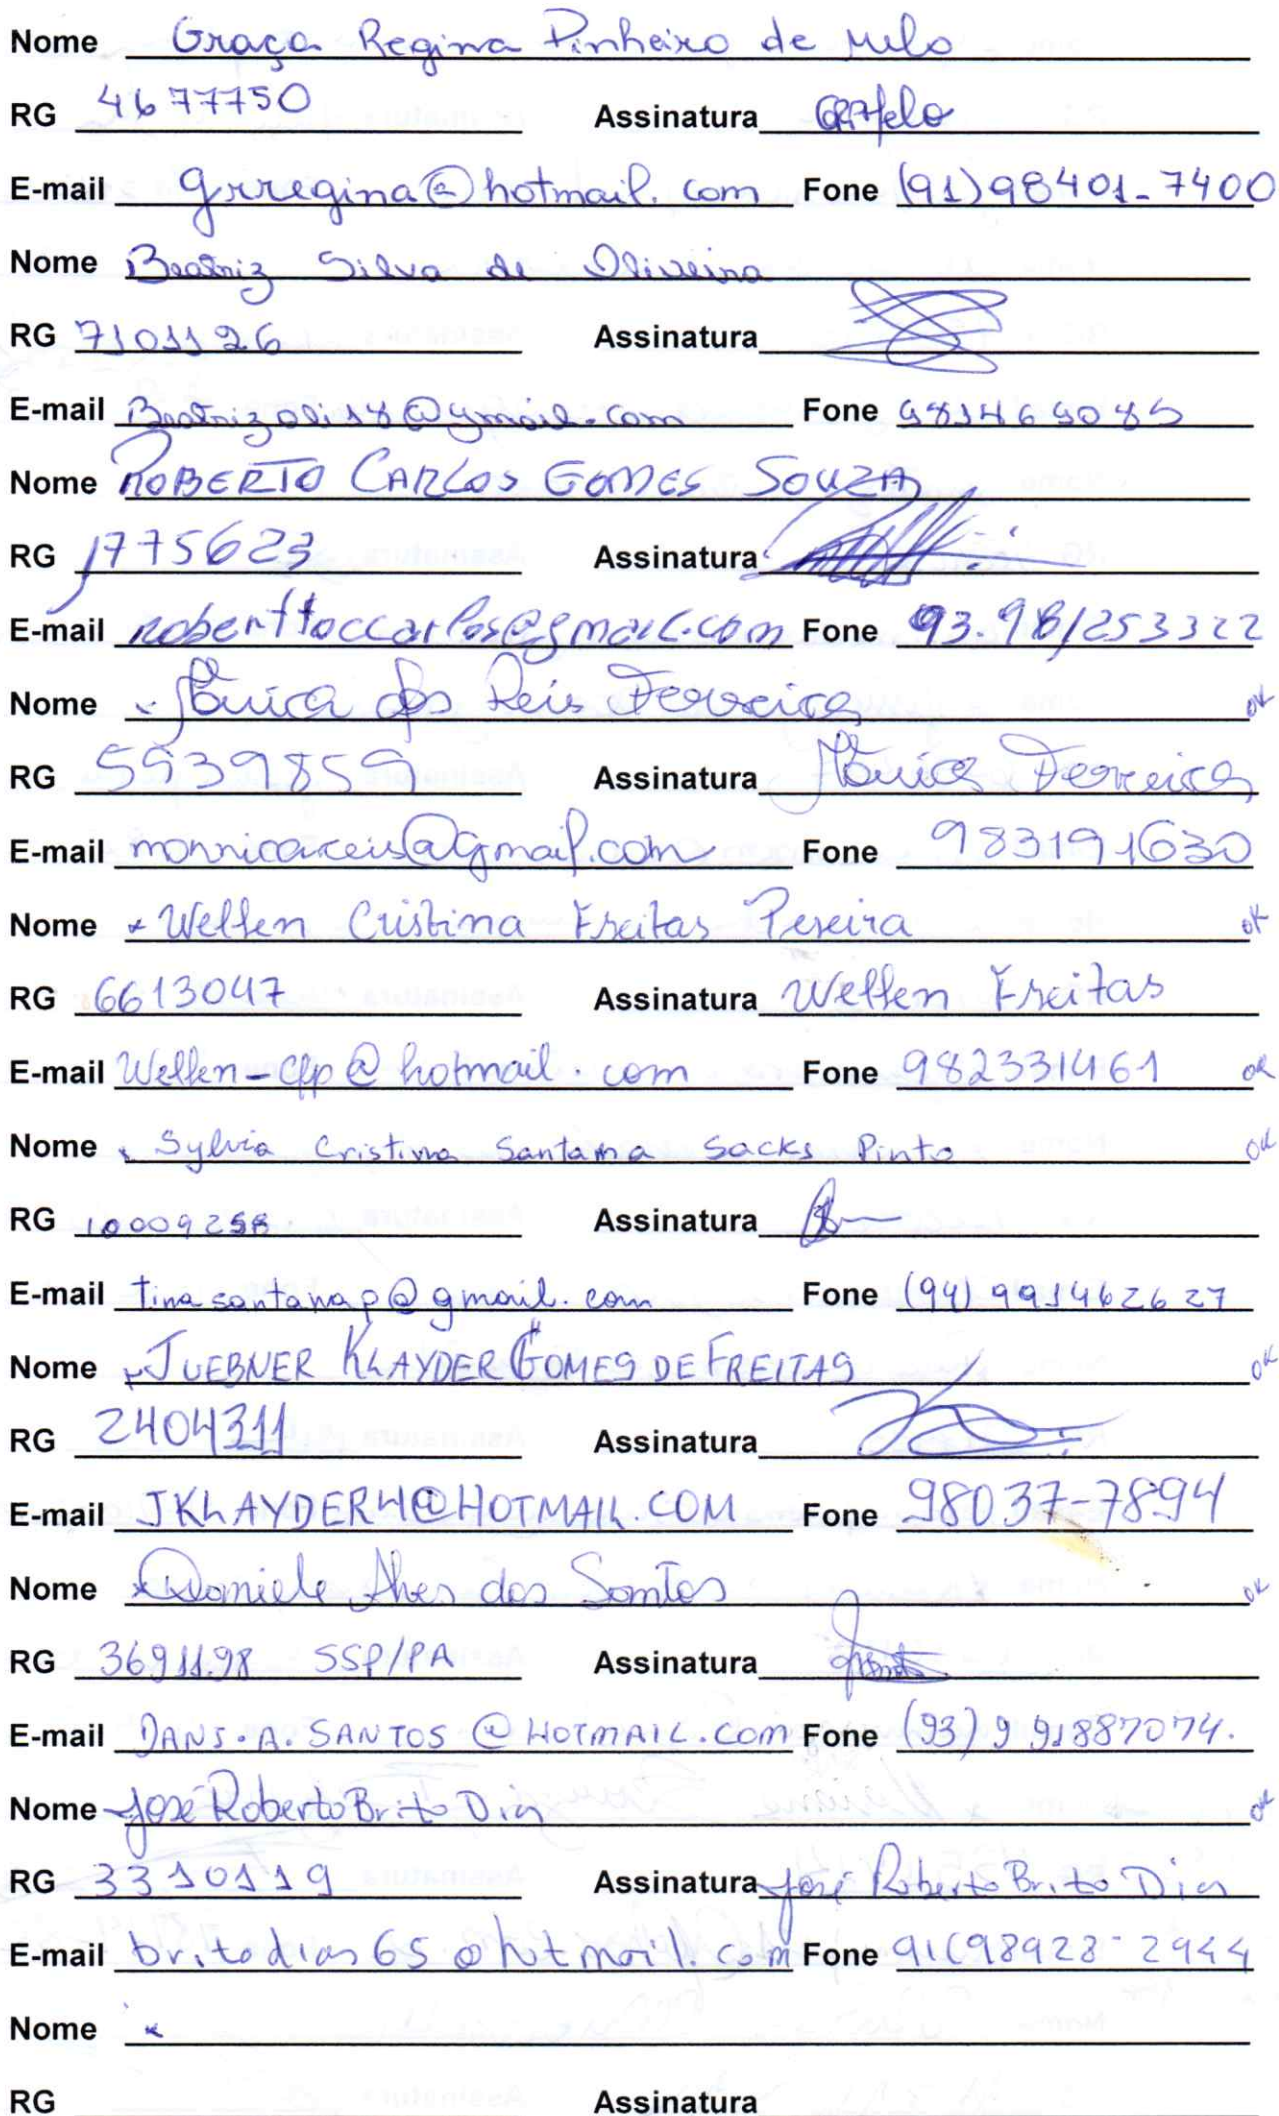 Nome Graça Regina Pinheiro de Melo
RG 4677750 Assinatura GRMelo
E-mail grregina@hotmail.com Fone (91)98401-7400
Nome Beatriz Silva de Oliveira
RG 7101126 Assinatura
E-mail Fone
Nome ROBERTO CARLOS GOMES SOUZA
RG 1775623 Assinatura
E-mail roberttoccarlos@gmail.com Fone
Nome Mônica dos Reis Ferreira ok
RG 5539859 Assinatura Mônica Ferreira
E-mail monnicareis@gmail.com Fone 983191630
Nome Wellen Cristina Freitas Pereira ok
RG 6613047 Assinatura Wellen Freitas
E-mail Wellen-cfp@hotmail.com Fone 982331461 ok
Nome Sylvia Cristina Santana Sacks Pinto ok
RG Assinatura
E-mail tinasantanap@gmail.com Fone (94)991462627
Nome JUEBNER KLAYDER GOMES DE FREITAS ok
RG 2404311 Assinatura
E-mail JKLAYDER4@HOTMAIL.COM Fone 98037-7894
Nome Daniele Alves dos Santos ok
RG 3691198 SSP/PA Assinatura
E-mail DANI.A.SANTOS@HOTMAIL.COM Fone (93)991887074.
Nome José Roberto Brito Dias ok
RG 3310119 Assinatura José Roberto Brito Dias
E-mail britodias65@hotmail.com Fone 91(98928-2944
Nome
RG Assinatura